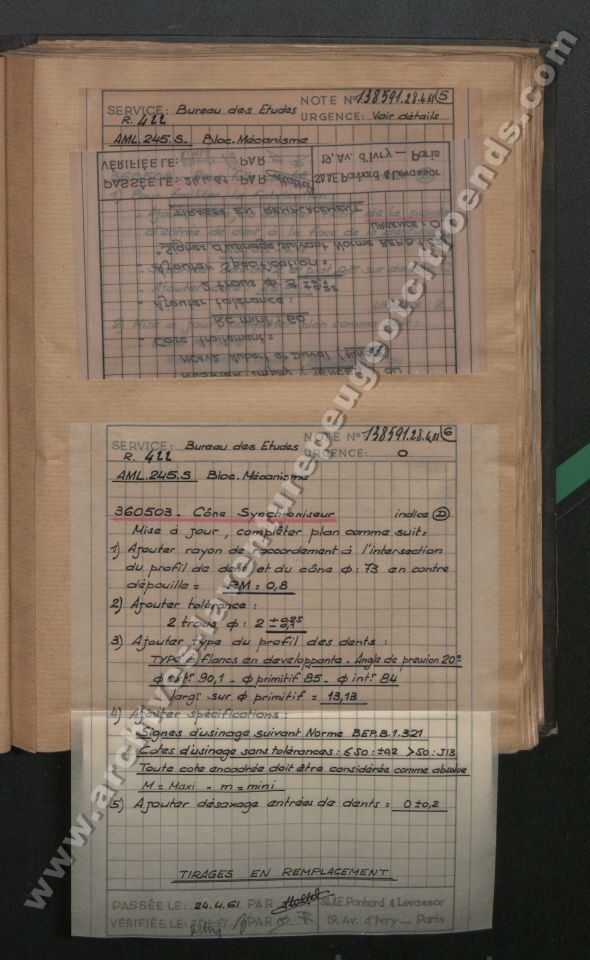 SERVICE: Bureau des Etudes NOTE N° 138591.28.4.61 5
R. 422 URGENCE: Voir détails
AML.245.S. Bloc. Mécanisme
VÉRIFIÉE LE: PAR 19, Av. d'Ivry _ Paris
PASSÉE LE: 24.4.61 PAR S.A.A.E. Panhard & Levassor
TIRAGES EN REMPLACEMENT
URGENCE: 0
Signes d'usinage suivant Norme
- Ajouter Spécification:
2 trous ϕ
- Ajouter tolérance:
Rc mini: 60
- Core traitement:
Aubert et Duval
SERVICE: Bureau des Etudes NOTE N° 138591.28.4.61 6
R. 422 URGENCE: 0
AML.245.S Bloc. Mécanisme
360503 _ Cône Synchroniseur indice D
Mise à jour, compléter plan comme suit:
1) Ajouter rayon de raccordement à l'intersection
du profil de dent et du cône ϕ: 73 en contre
dépouille = RM = 0,8
2) Ajouter tolérance:
2 trous ϕ: 2
3) Ajouter type du profil des dents:
TYPE à flancs en developpante. Angle de pression 20°
ϕ extr 90,1 - ϕ primitif 85 - ϕ intr 84
largr sur ϕ primitif = 13,13
4) Ajouter spécifications:
Signes d'usinage suivant Norme BEP.B.1.321
Cotes d'usinage sans tolérances: ≤ 50: ±0,2 > 50: J13
Toute cote encadrée doit être considérée comme absolue
M = Maxi - m = mini
5) Ajouter désaxage entrées de dents = 0 ± 0,2
TIRAGES EN REMPLACEMENT
PASSÉE LE: 24.4.61 PAR S.A.A.E. Panhard & Levassor
VÉRIFIÉE LE: PAR 19, Av. d'Ivry _ Paris
www.archives.laventurepeugeotcitroends.com